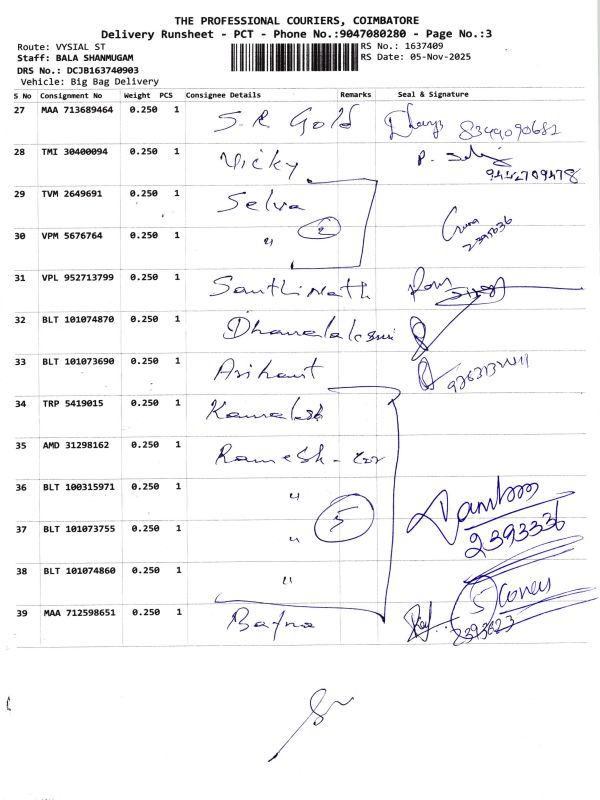 THE PROFESSIONAL COURIERS, COIMBATORE
Delivery Runsheet - PCT - Phone No.:9047080280 - Page No.:3
Route: VYSIAL ST
RS No.: 1637409
Staff: BALA SHANMUGAM
RS Date: 05-Nov-2025
DRS No.: DCJB163740903
Vehicle: Big Bag Delivery
S No Consignment No Weight PCS Consignee Details Remarks Seal & Signature
27 MAA 713689464 0.250 1 S.R Gold 8344090681
28 TMI 30400094 0.250 1 Vicky 9442709478
29 TVM 2649691 0.250 1 Selva
30 VPM 5676764 0.250 1 " 2 2395036
31 VPL 952713799 0.250 1 Santhinath
32 BLT 101074870 0.250 1 Dhanalakshmi
33 BLT 101073690 0.250 1 Arihant
34 TRP 5419015 0.250 1 Kamalesh
35 AMD 31298162 0.250 1 Ramesh -
36 BLT 100315971 0.250 1 "
37 BLT 101073755 0.250 1 " 5 2393336
38 BLT 101074860 0.250 1 "
39 MAA 712598651 0.250 1 Bafna 5 Covers 2393623